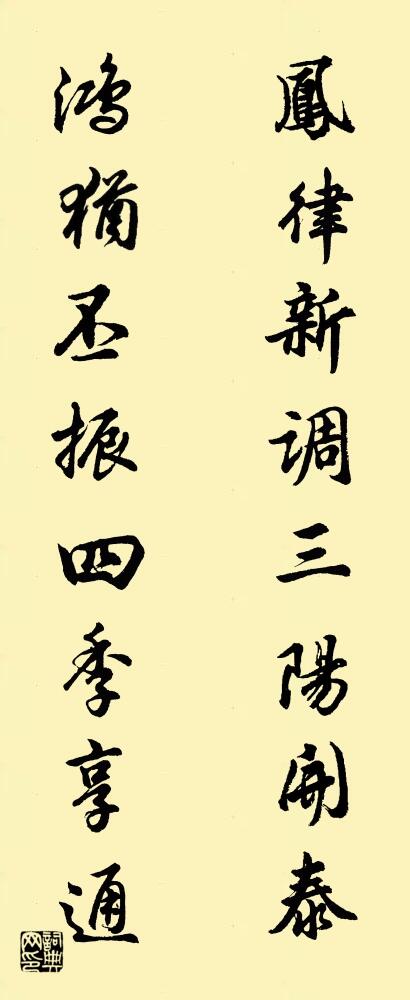 鳳律新调三陽開泰
鴻猶丕振四季享通
詞典网印